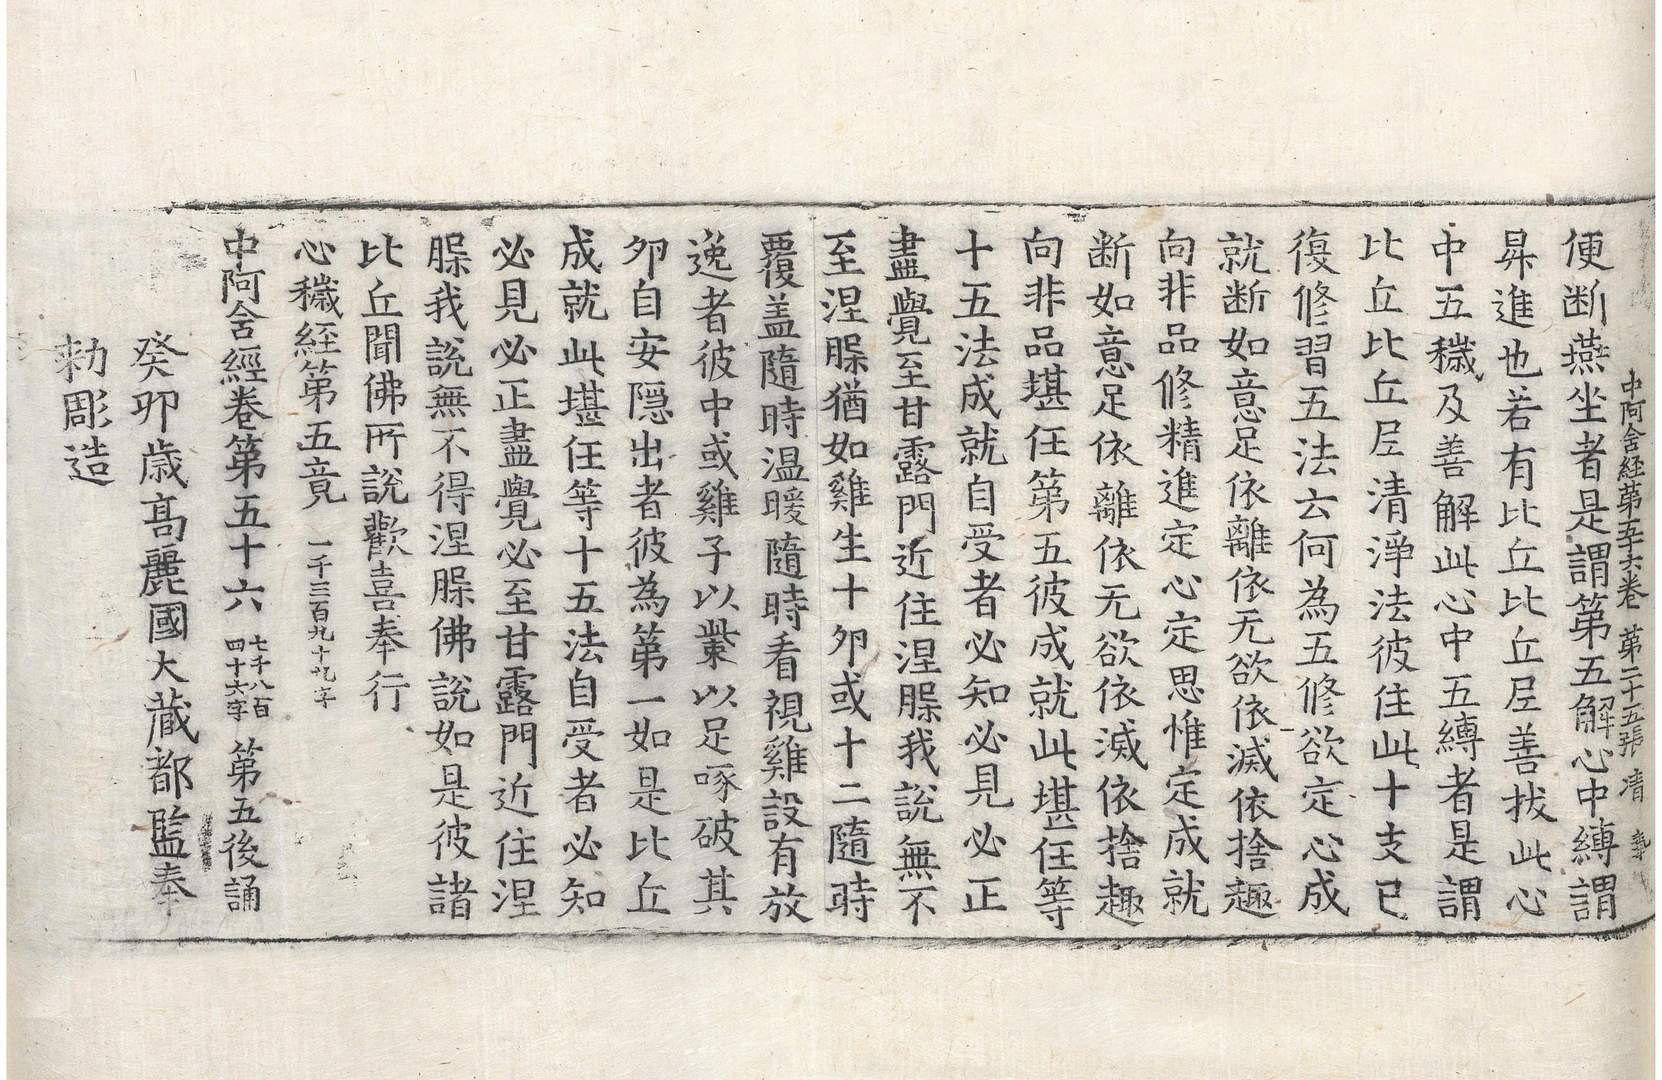 中阿含経第五十六卷 第二十五張 清
便断燕坐者是謂第五解心中縛謂
昇進也若有比丘比丘𡰱善拔此心
中五穢及善解此心中五縛者是謂
比丘比丘𡰱清淨法彼住此十支已
復修習五法云何為五修欲定心成
就断如意足依離依无欲依滅依捨趣
向非品修精進定心定思惟定成就
断如意足依離依无欲依滅依捨趣
向非品堪任第五彼成就此堪任等
十五法成就自受者必知必見必正
盡覺至甘露門近住涅槃我說無不
至涅槃猶如雞生十卵或十二隨時
覆盖隨時温暖隨時看視雞設有放
逸者彼中或雞子以𭉨以足啄破其
卵自安隱出者彼為第一如是比丘
成就此堪任等十五法自受者必知
必見必正盡覺必至甘露門近住涅
槃我說無不得涅槃佛說如是彼諸
比丘聞佛所說歡喜奉行
心穢経第五竟 一千三百九十九字
中阿含經卷第五十六 七千八百四十六字 第五後誦
癸卯歲高麗國大藏都監奉
勅彫造